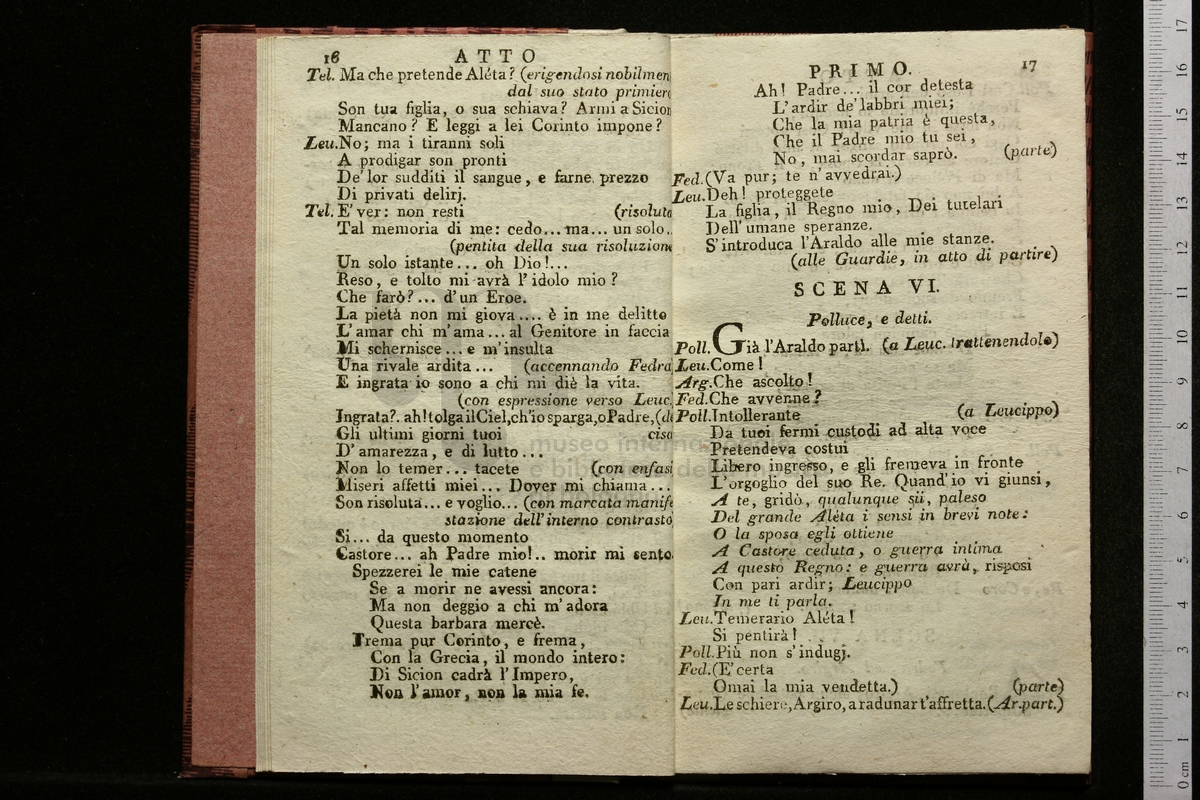 16 ATTO
Tel. Ma che pretende Aléta? (erigendosi nobilmen
dal suo stato primiero
Son tua figlia, o sua schiava? Armi a Sicion
Mancano? E leggi a lei Corinto impone?
Leu. No; ma i tiranni soli
A prodigar son pronti
De' lor sudditi il sangue, e farne prezzo
Di privati delirj.
Tel. E' ver: non resti (risoluta
Tal memoria di me: cedo... ma... un solo..
(pentita della sua risoluzione
Un solo istante... oh Dio!...
Reso, e tolto mi avrà l'idolo mio?
Che farò?... d'un Eroe.
La pietà non mi giova.... è in me delitto
L'amar chi m'ama... al Genitore in faccia
Mi schernisce... e m'insulta
Una rivale ardita... (accennando Fedra
E ingrata io sono a chi mi diè la vita.
(con espressione verso Leuc.
Ingrata?. ah! tolga il Ciel, ch'io sparga, o Padre, (de
Gli ultimi giorni tuoi cisa
D'amarezza, e di lutto...
Non lo temer... tacete (con enfasi
Miseri affetti miei... Dover mi chiama...
Son risoluta... e voglio... (con marcata manife
stazione dell'interno contrasto
Si... da questo momento
Castore... ah Padre mio!.. morir mi sento
Spezzerei le mie catene
Se a morir ne avessi ancora:
Ma non deggio a chi m'adora
Questa barbara mercè.
Trema pur Corinto, e frema,
Con la Grecia, il mondo intero:
Di Sicion cadrà l'Impero,
Non l'amor, non la mia fe.
PRIMO. 17
Ah! Padre... il cor detesta
L'ardir de' labbri miei;
Che la mia patria è questa,
Che il Padre mio tu sei,
No, mai scordar saprò. (parte)
Fed. (Va pur; te n'avvedrai.)
Leu. Deh! proteggete
La figlia, il Regno mio, Dei tutelari
Dell'umane speranze.
S'introduca l'Araldo alle mie stanze.
(alle Guardie, in atto di partire)
SCENA VI.
Polluce, e detti.
Poll. Già l'Araldo partì. (a Leuc. trattenendolo)
Leu. Come!
Arg. Che ascolto!
Fed. Che avvenne?
Poll. Intollerante (a Leucippo)
Da tuoi fermi custodi ad alta voce
Pretendeva costui
Libero ingresso, e gli fremeva in fronte
L'orgoglio del suo Re. Quand'io vi giunsi,
A te, gridò, qualunque sii, paleso
Del grande Aléta i sensi in brevi note:
O la sposa egli ottiene
A Castore ceduta, o guerra intima
A questo Regno: e guerra avrà, risposi
Con pari ardir; Leucippo
In me ti parla.
Leu. Temerario Aléta!
Si pentirà!
Poll. Più non s'indugj.
Fed. (E' certa
Omai la mia vendetta.) (parte)
Leu. Le schiere, Argiro, a radunar t'affretta. (Ar. part.)